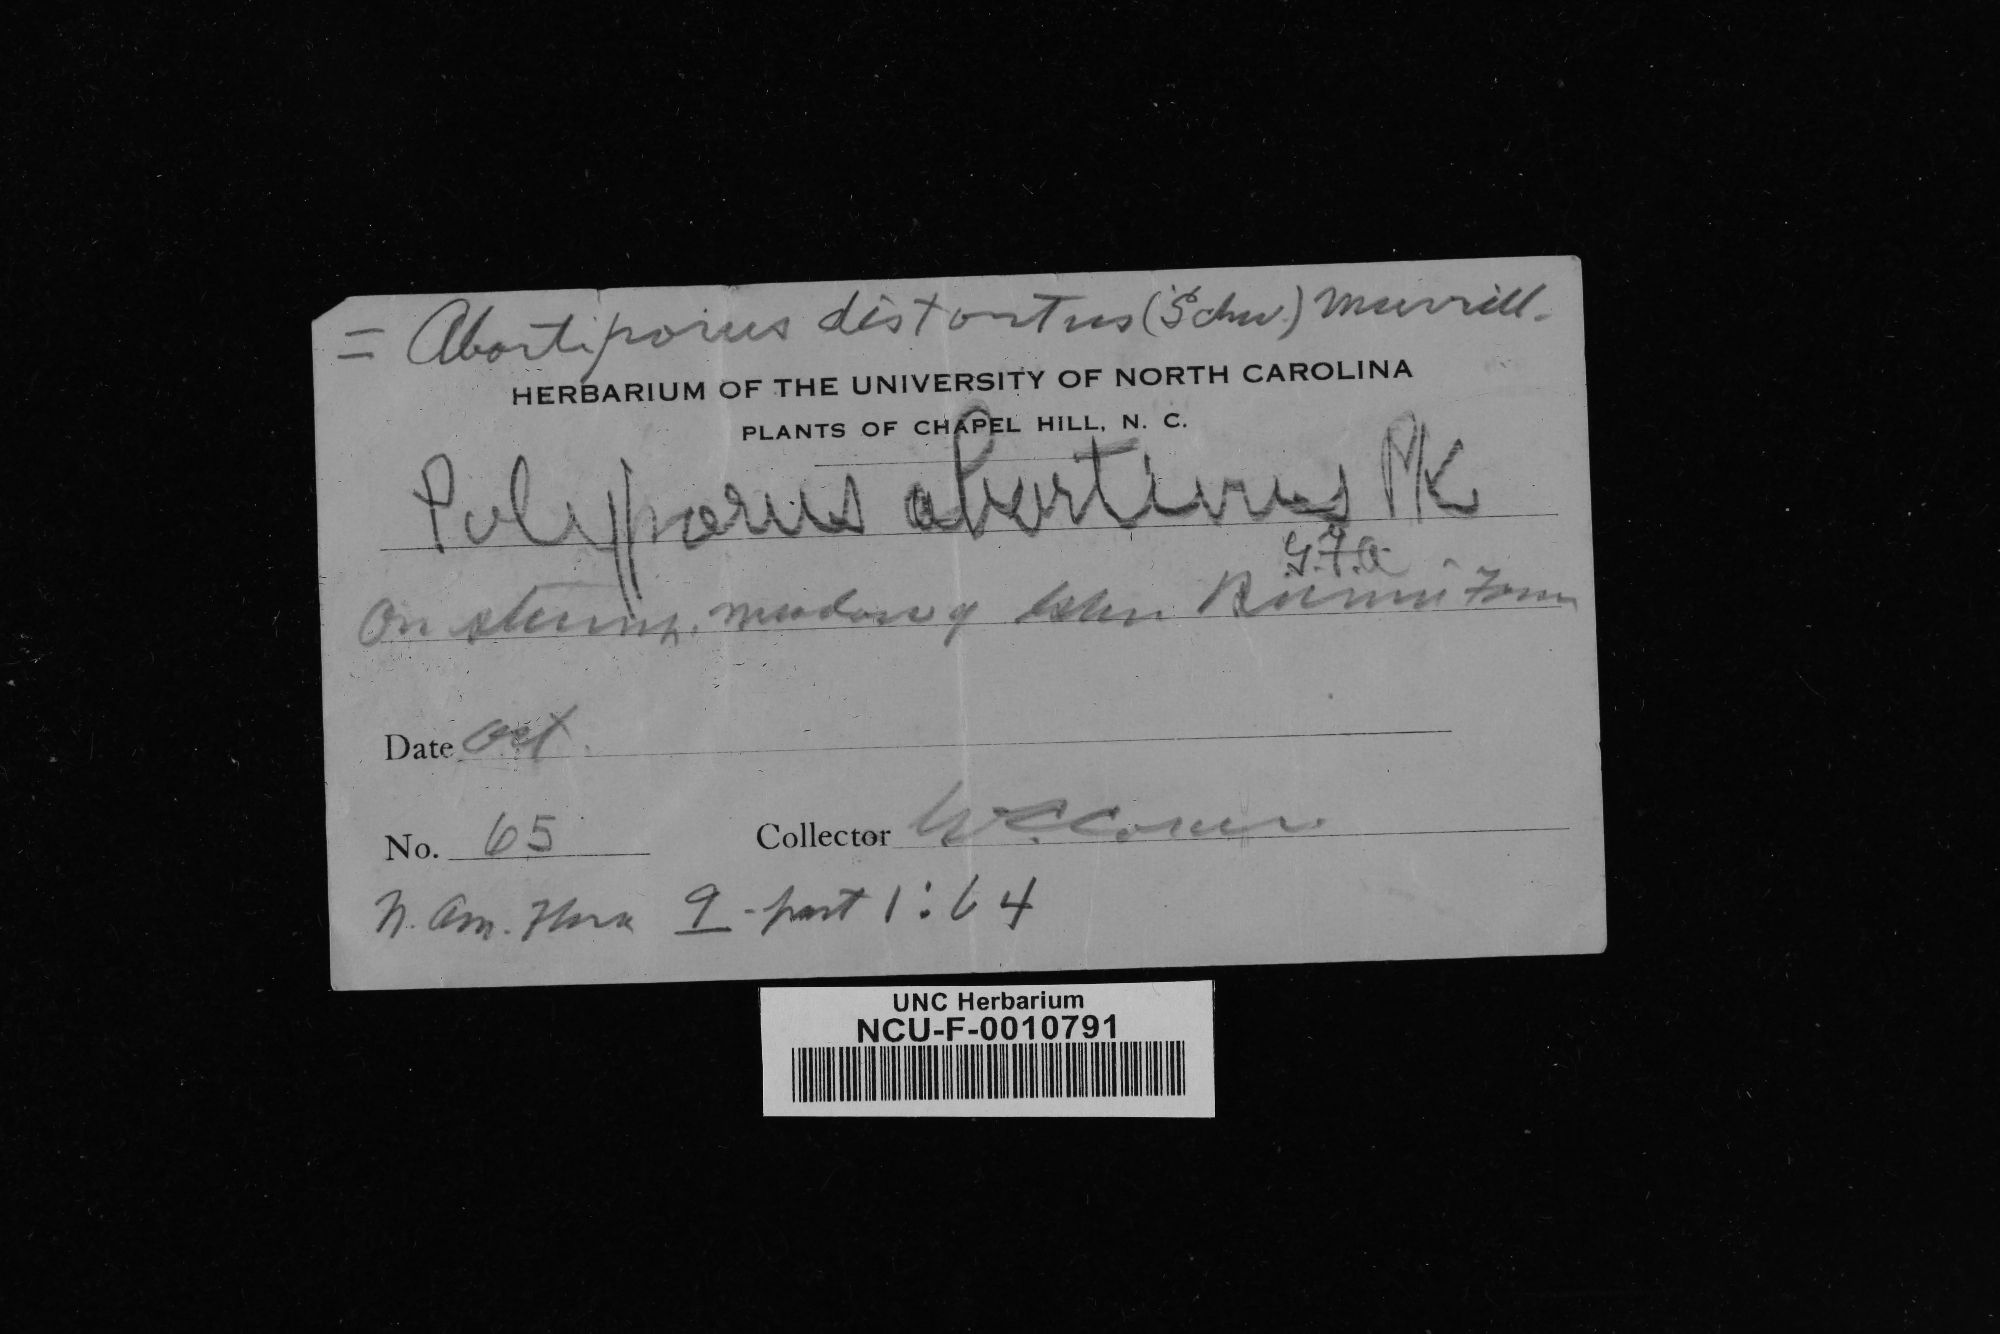 = Abortiporus distortus (Schw.) Murrill.
HERBARIUM OF THE UNIVERSITY OF NORTH CAROLINA
PLANTS OF CHAPEL HILL, N. C.
Polyporus abortivus Pk
G.F.A.
On stump,
Date Oct.
No. 65 Collector W C Coker
N. Am. Flora 9 - part 1:64
UNC Herbarium
NCU-F-0010791